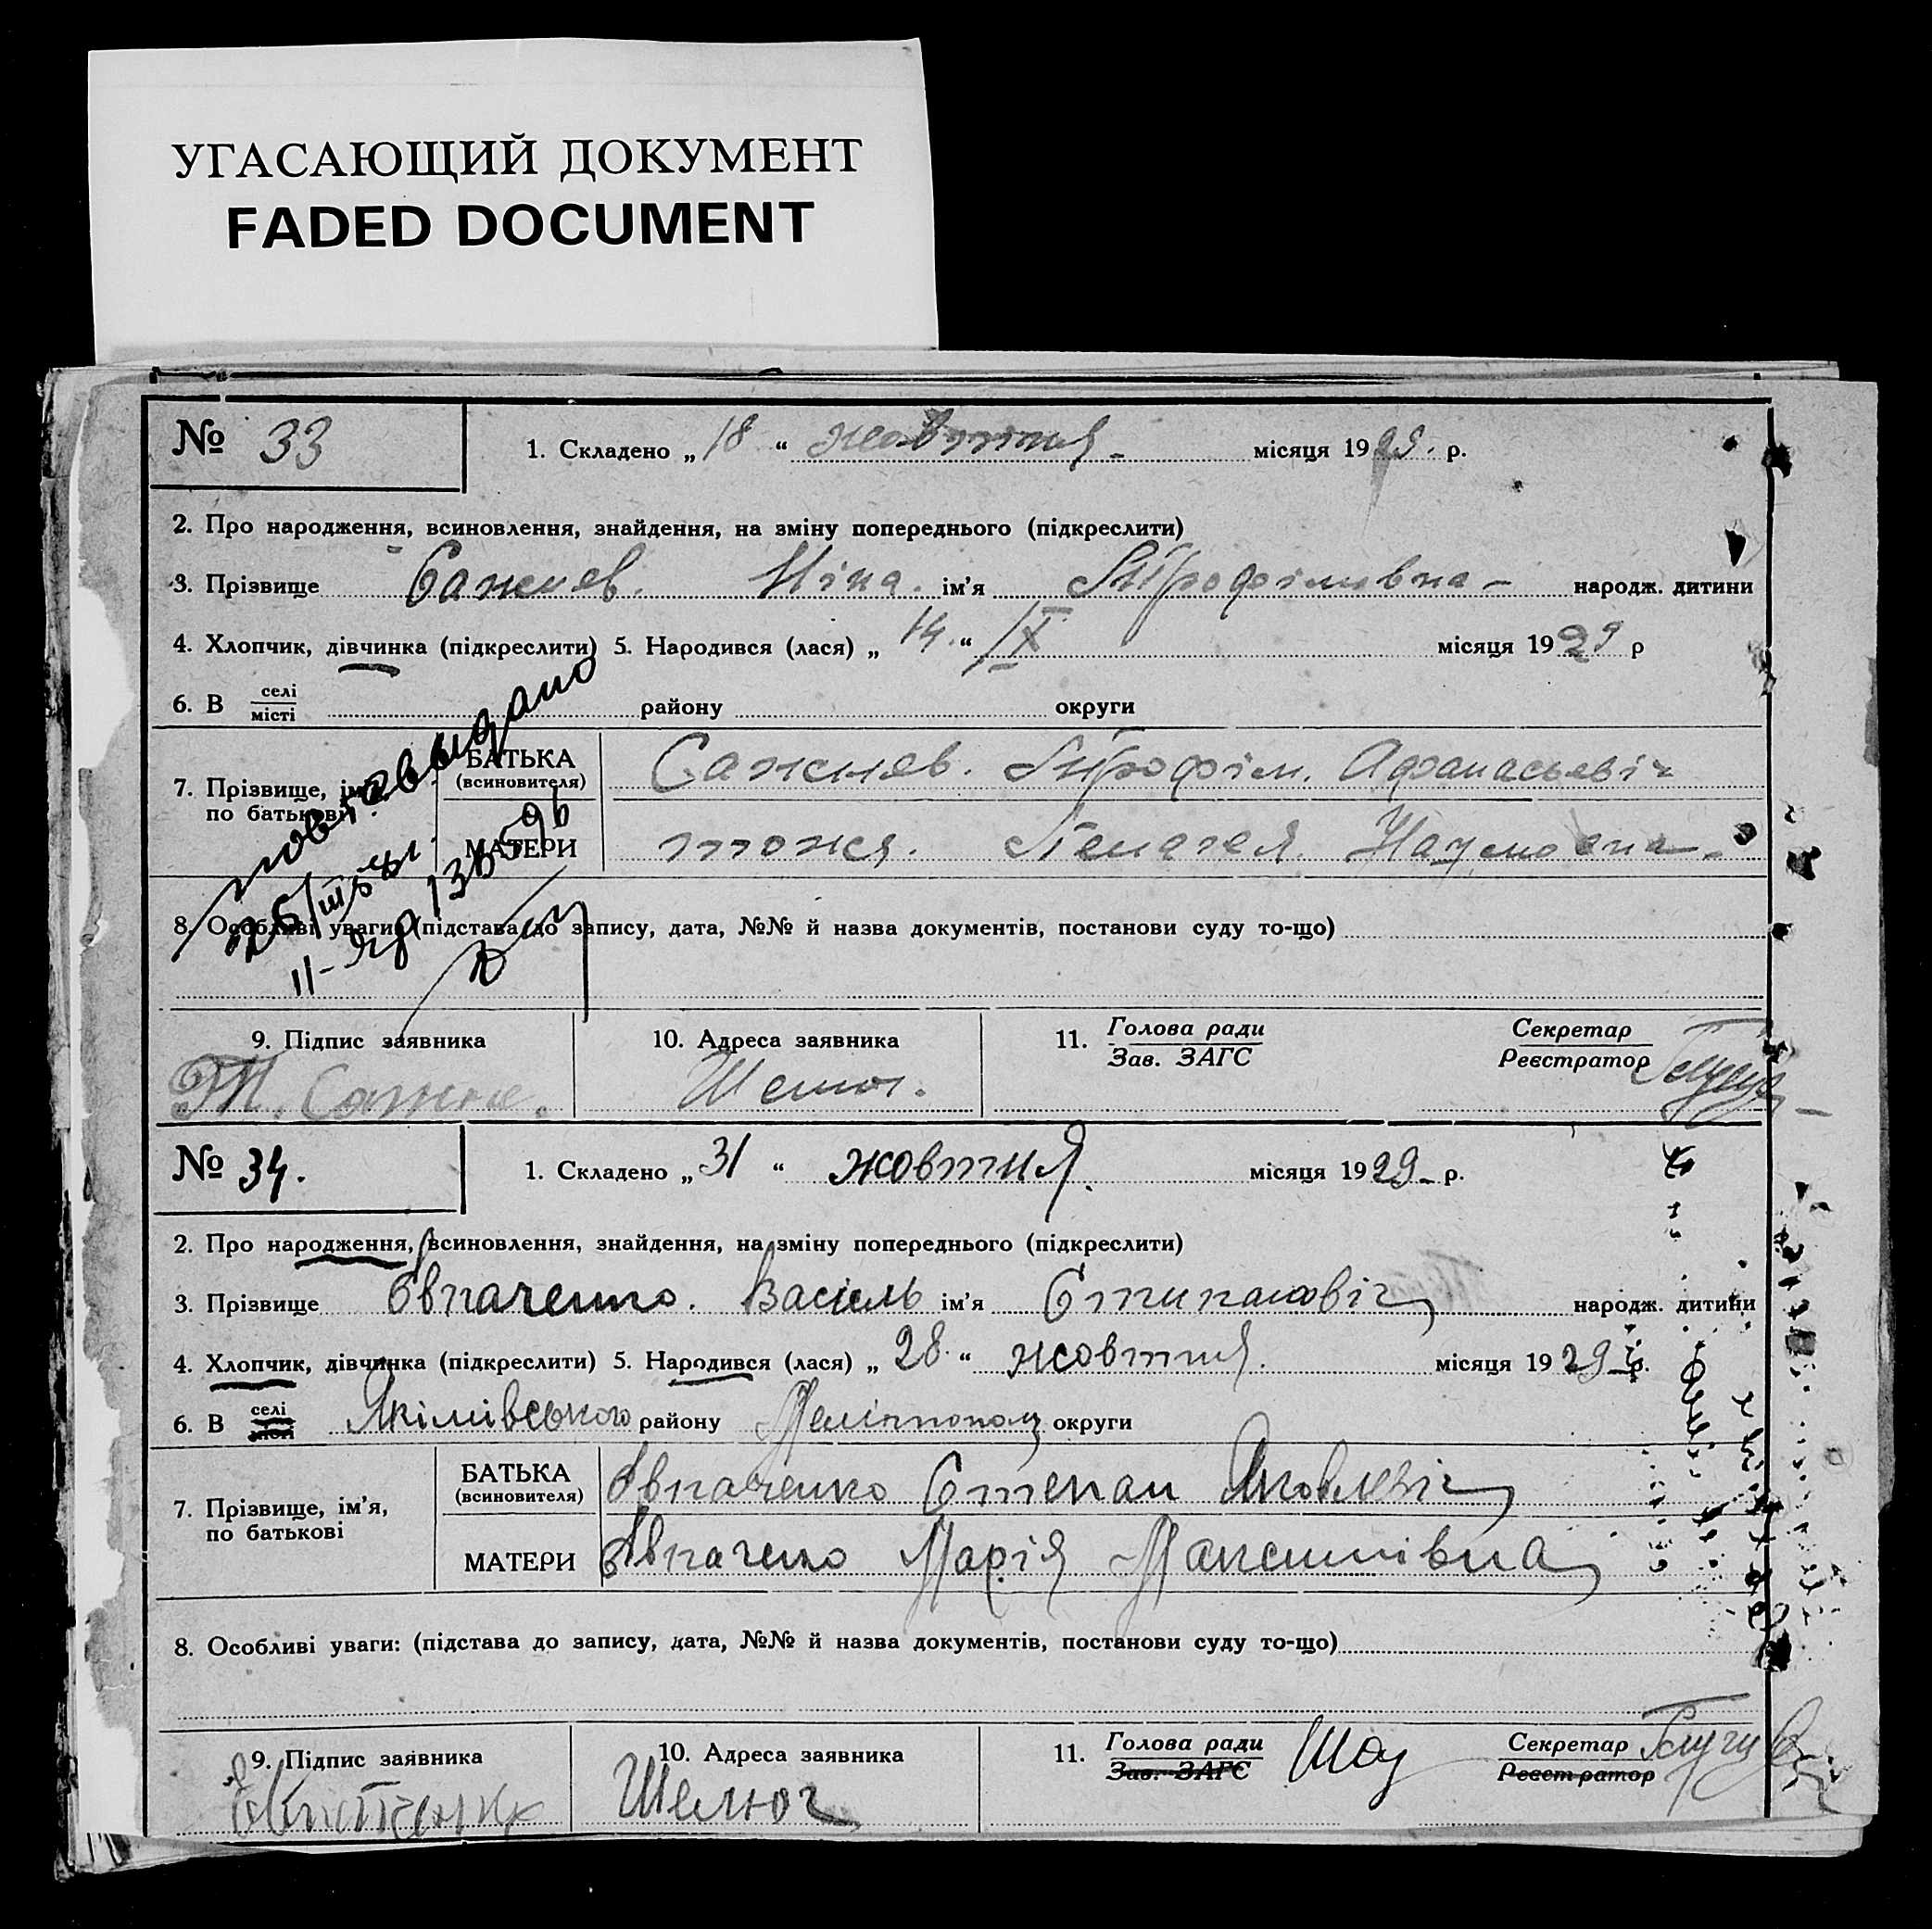 УГАСАЮЩИЙ ДОКУМЕНТ
FADED DOCUMENT
№ 33
1. Складено „ 18 “ жовтня місяця 1929. р.
2. Про народження, всиновлення, знайдення, на зміну попереднього (підкреслити)
3. Прізвище Сажнєв. Ніна. ім'я Трофімивна народж. дитини
4. Хлопчик, дівчинка (підкреслити) 5. Народився (лася) „ 14. “ IX місяця 1929 р
6. В селі місті району округи
7. Прізвище, ім'я по батькові
БАТЬКА (всиновителя) Сажнєв. Трофім. Афанасьевіч
МАТЕРИ тожя. Пелагея. Наумовна
8. Особливі уваги (підстава до запису, дата, №№ й назва документів, постанови суду то-що)
9. Підпис заявника
10. Адреса заявника
11. Голова ради Зав. ЗАГС
Секретар Реєстратор
№ 34.
1. Складено „ 31 “ жовтня. місяця 1929 р.
2. Про народження, всиновлення, знайдення, на зміну попереднього (підкреслити)
3. Прізвище Васіль ім'я Стипановіч народж. дитини
4. Хлопчик, дівчинка (підкреслити) 5. Народився (лася) „ 28. “ жовтня. місяця 1929 р.
6. В селі місті Якімівського району Меліттопол округи
7. Прізвище, ім'я, по батькові
БАТЬКА (всиновителя) Степан Яковлевіч
МАТЕРИ Марія Максимівна
8. Особливі уваги: (підстава до запису, дата, №№ й назва документів, постанови суду то-що)
9. Підпис заявника
10. Адреса заявника Шелюг
11. Голова ради Зав. ЗАГС
Секретар Реєстратор